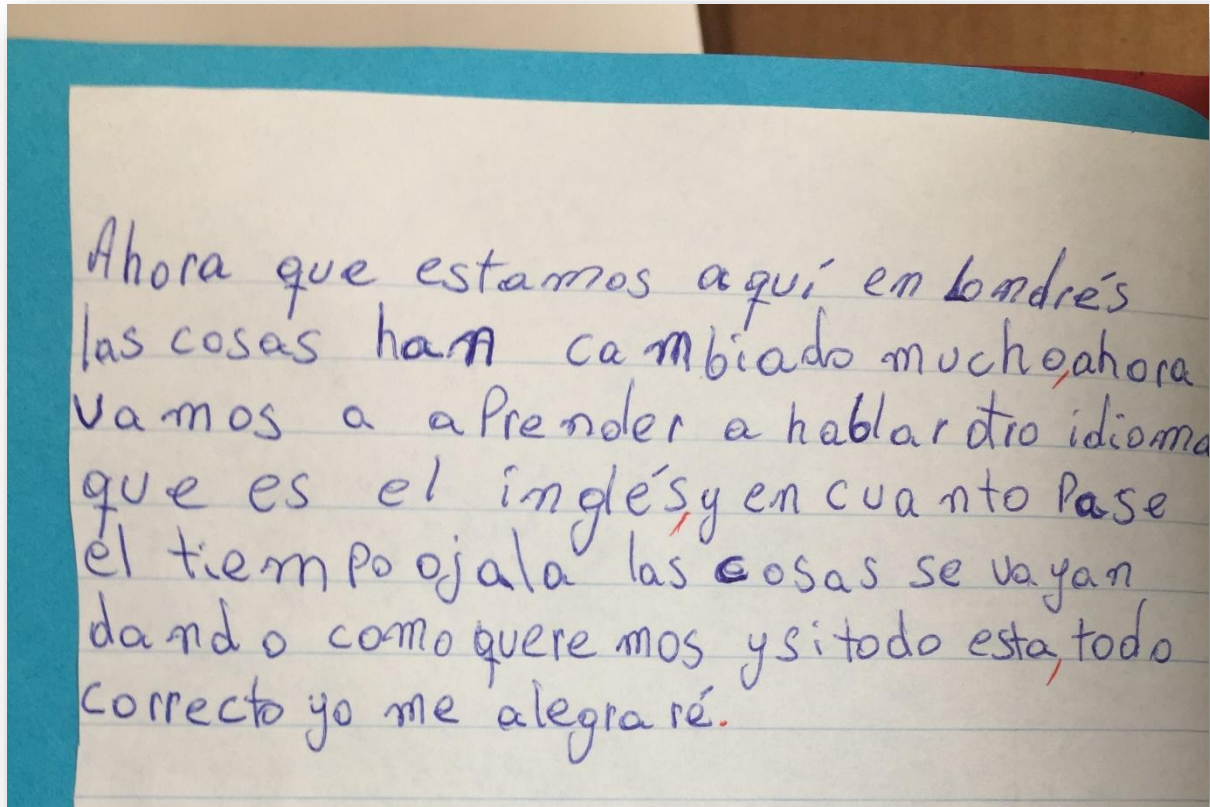 Ahora que estamos aquí en Londrés
las cosas han cambiado mucho,ahora
vamos a aPrender a hablar otro idioma
que es el inglés,y en cuanto Pase
el tiempo ojala las cosas se vayan
dando como queremos y si todo esta,todo
correcto yo me alegraré.